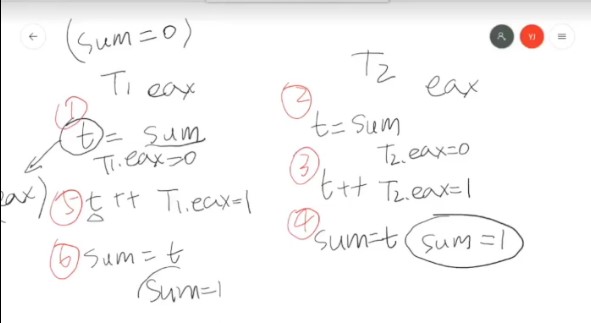 (sum=0)
T1 eax
① t = sum
T1.eax=0
eax) ⑤ t++ T1.eax=1
⑥ sum=t
sum=1
T2 eax
② t=sum
T2.eax=0
③ t++ T2.eax=1
④ sum=t sum=1
YJ